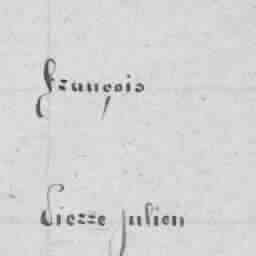 François
Pierre Julien